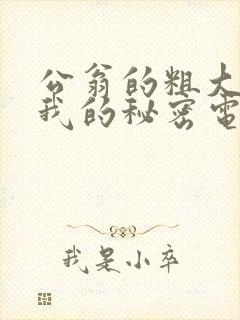 公翁的粗大
我的秘密電
我是小卒